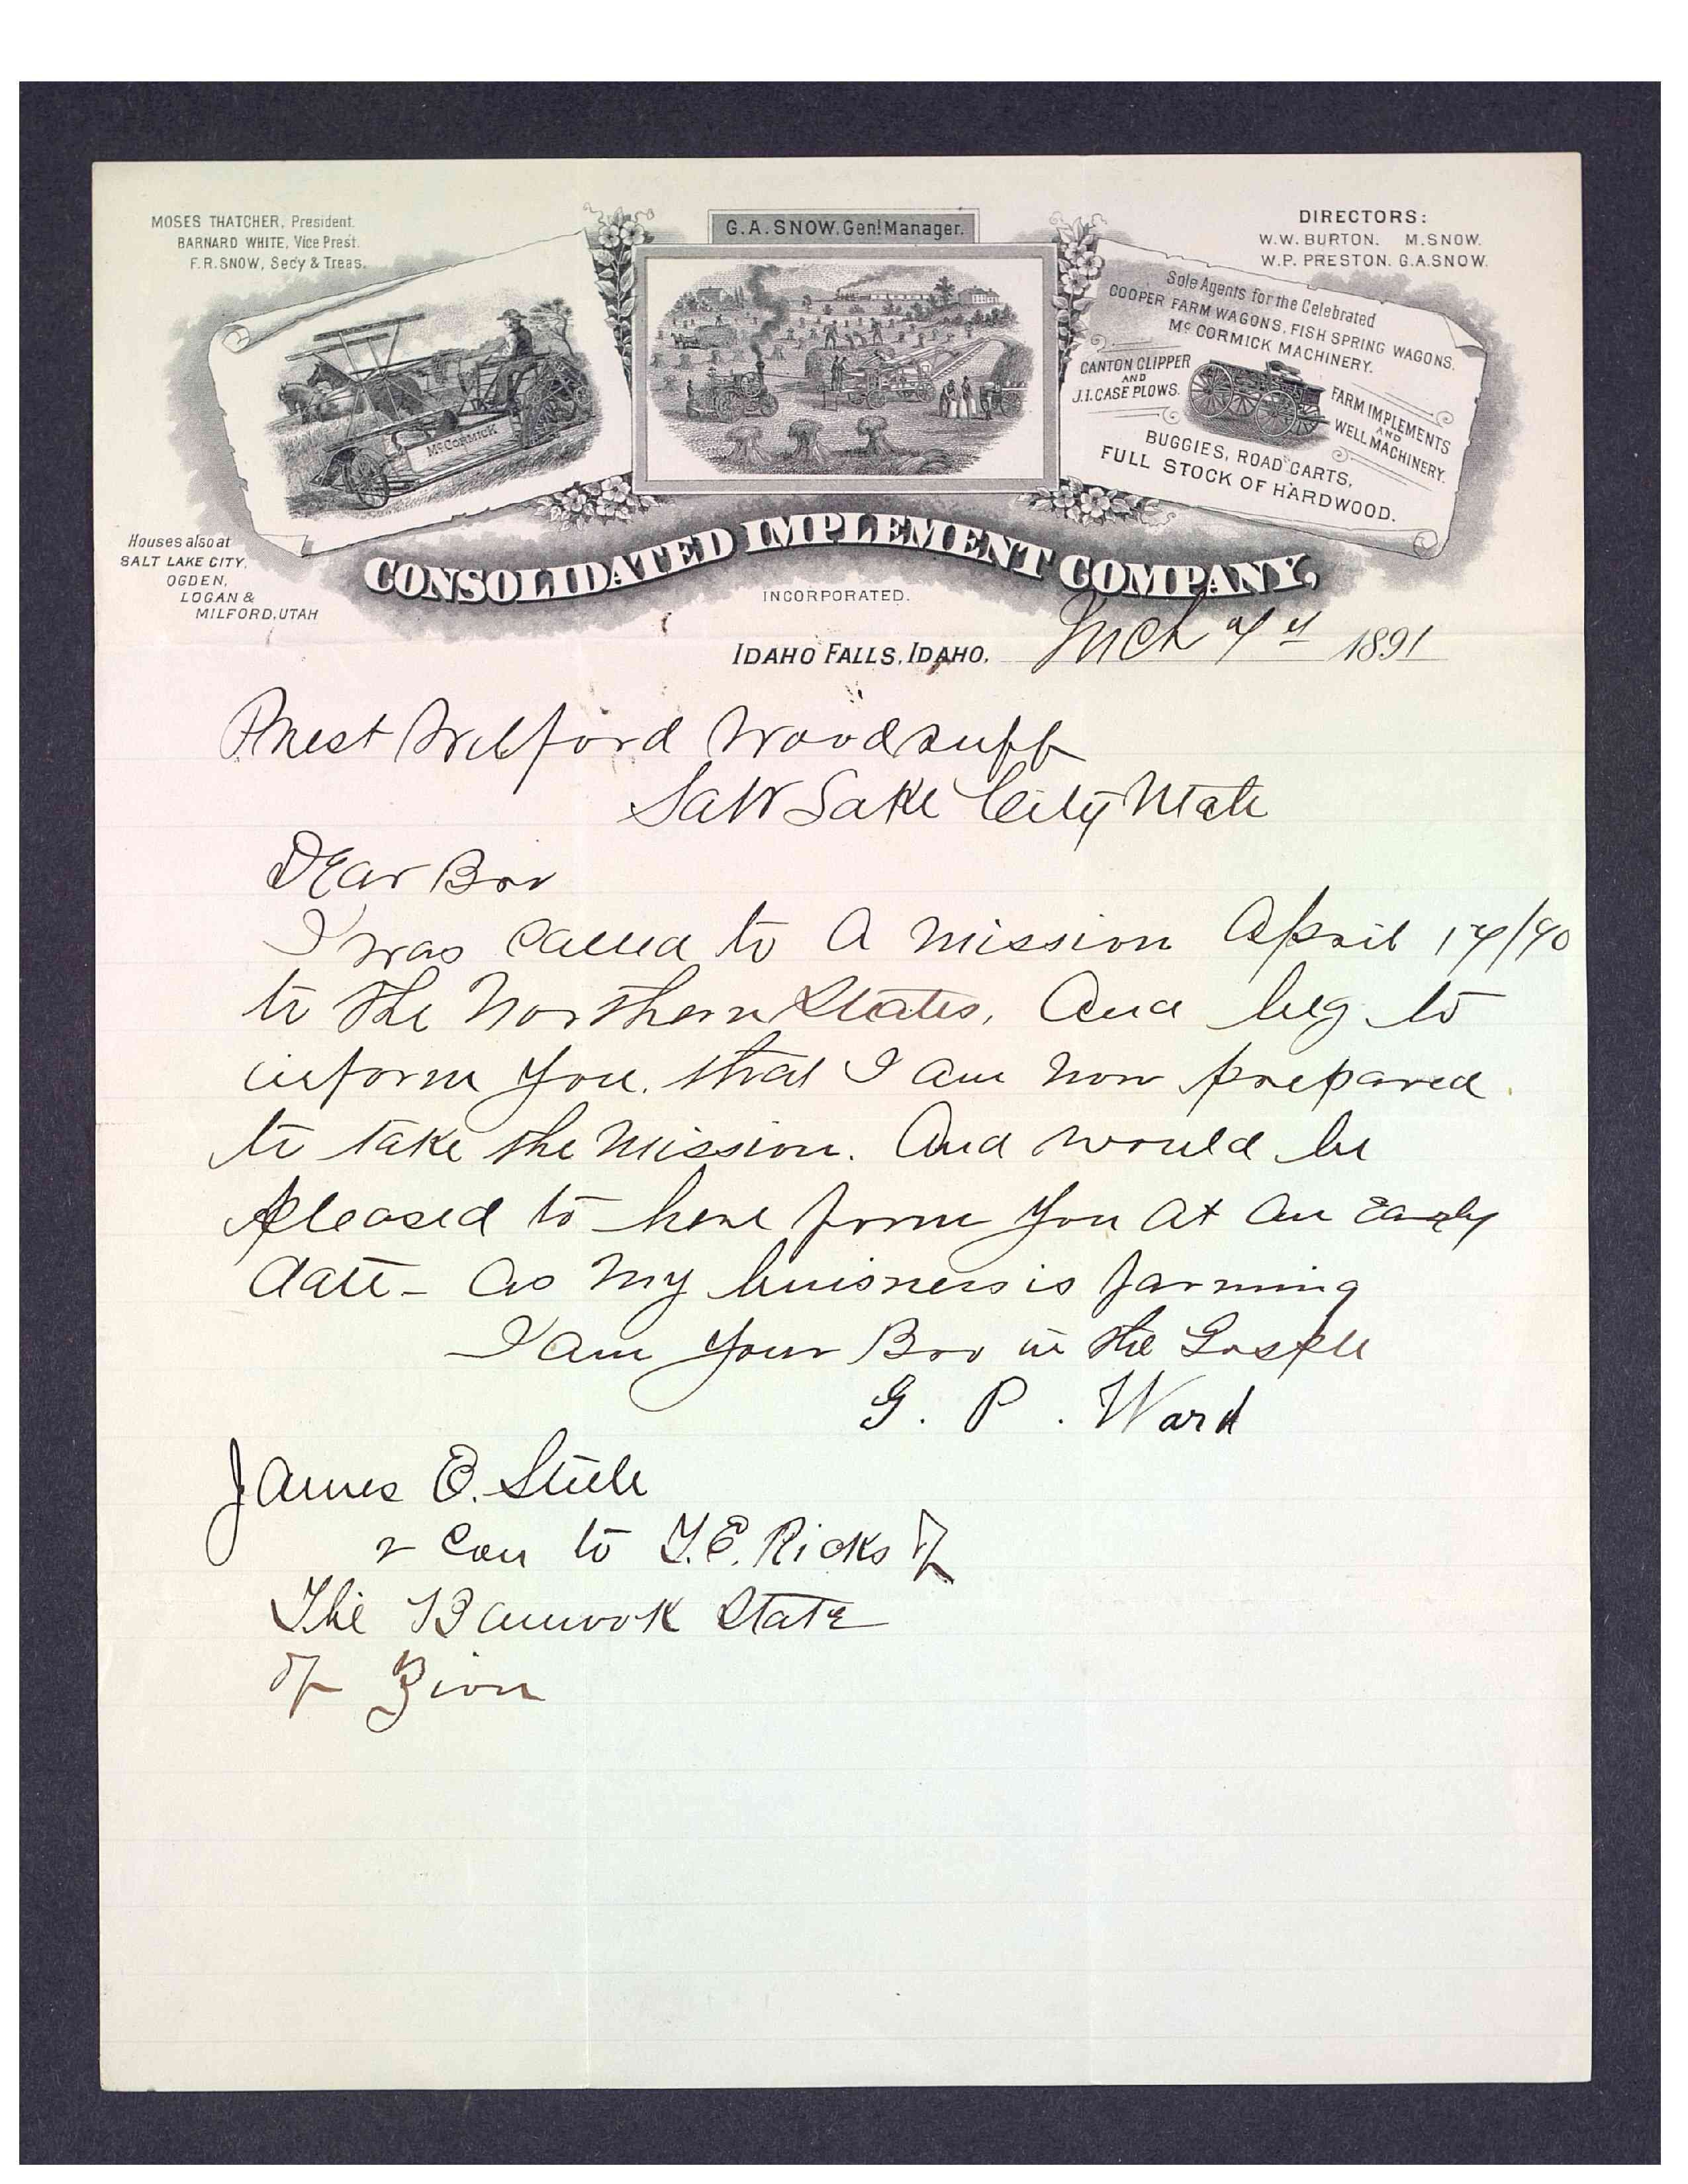 MOSES THATCHER, President.
BARNARD WHITE, Vice Prest.
F.R. SNOW, Secy & Treas.
G. A. SNOW, Genl Manager.
DIRECTORS:
W. W. BURTON. M. SNOW.
W. P. PRESTON. G. A. SNOW.
McCORMICK
Sole Agents for the Celebrated
COOPER FARM WAGONS, FISH SPRING WAGONS.
Mc CORMICK MACHINERY.
CANTON CLIPPER
AND
J.I. CASE PLOWS.
FARM IMPLEMENTS
AND
WELL MACHINERY.
BUGGIES, ROAD CARTS,
FULL STOCK OF HARDWOOD.
Houses also at
SALT LAKE CITY,
OGDEN,
LOGAN &
MILFORD, UTAH
CONSOLIDATED IMPLEMENT COMPANY,
INCORPORATED.
IDAHO FALLS, IDAHO, Mch 1891
Prest Wilford Woodruff
Salt Lake City Utah
Dear Bro
I was called to A Mission April 17/90
to the Northern States, And beg to
inform You. that I am now prepared
to take the Mission. And would be
pleased to here from You At An Early
date - As My buisness is farming
I am Your Bro in the Gospel
G. P. Ward
James E. Steele
2 Con to T. E. Ricks of
The Bannock Stake
of Zion